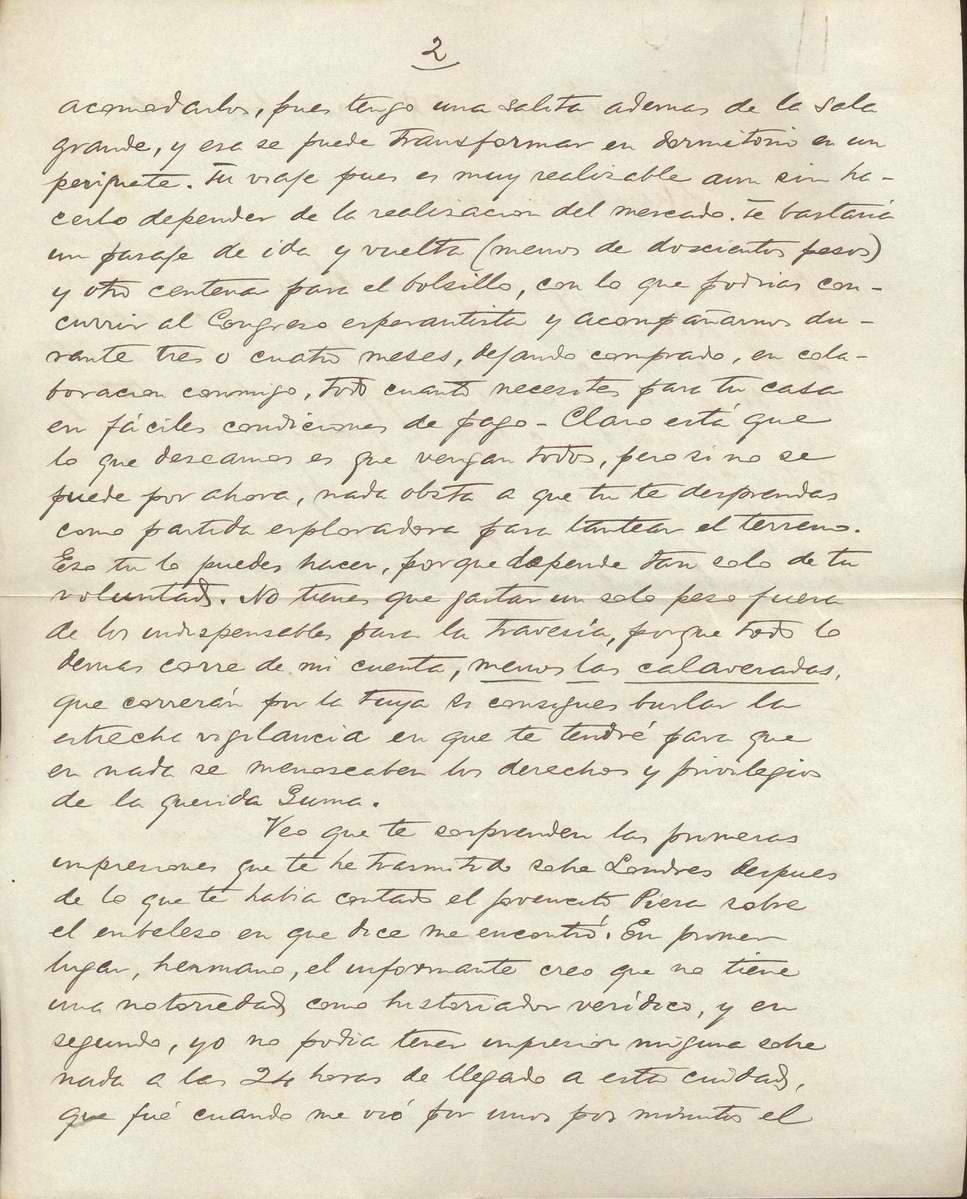 2
acomodarlos, pues tengo una salita ademas de la sala
grande, y esa se puede transformar en dormitorio en un
periquete. Tu viaje pues es muy realizable aun sin ha-
cerlo depender de la realisacion del mercado. Te bastaria
un pasaje de ida y vuelta (menos de doscientos pesos)
y otro centenar para el bolsillo, con lo que podrias con-
currir al Congreso esperantista y acompañarnos du-
rante tres o cuatro meses, dejando comprado, en cola-
boracion conmigo, todo cuanto necesites para tu casa
en fáciles condiciones de pago - Claro está que
lo que deseamos es que vengan todos, pero si no se
puede por ahora, nada obsta a que tu te desprendas
como partida esploradora para tantear el terreno.
Eso tu lo puedes hacer, porque depende tan solo de tu
voluntad. No tienes que gastar un solo peso fuera
de los indispensables para la travesía, porque todo lo
demas corre de mi cuenta, menos las calaveradas,
que correrán por la tuya si consigues burlar la
estrecha vigilancia en que te tendré para que
en nada se menoscaben los derechos y privilegios
de la querida Guma.
Veo que te sorprenden las primeras
impresiones que te he trasmitido sobre Londres despues
de lo que te habia contado el jovencito Piera sobre
el embeleso en que dice me encontró. En primer
lugar, hermano, el informante creo que no tiene
una notoriedad como historiador verídico, y en
segundo, yo no podia tener impresion ninguna sobre
nada a las 24 horas de llegado a esta cuidad,
que fué cuando me vió por unos pos minutos el